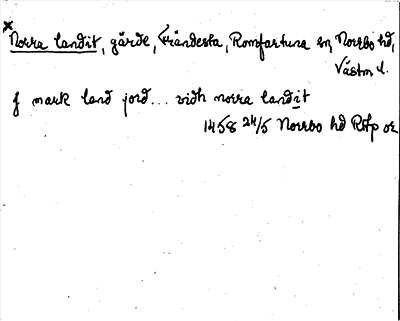 × Norra landit, gärde, Frändesta, Romfartuna sn, Norrbo hd,
Västm l.
j mark land jord... vidh norra landit
1458 24/5 Norrbo hd RAp or